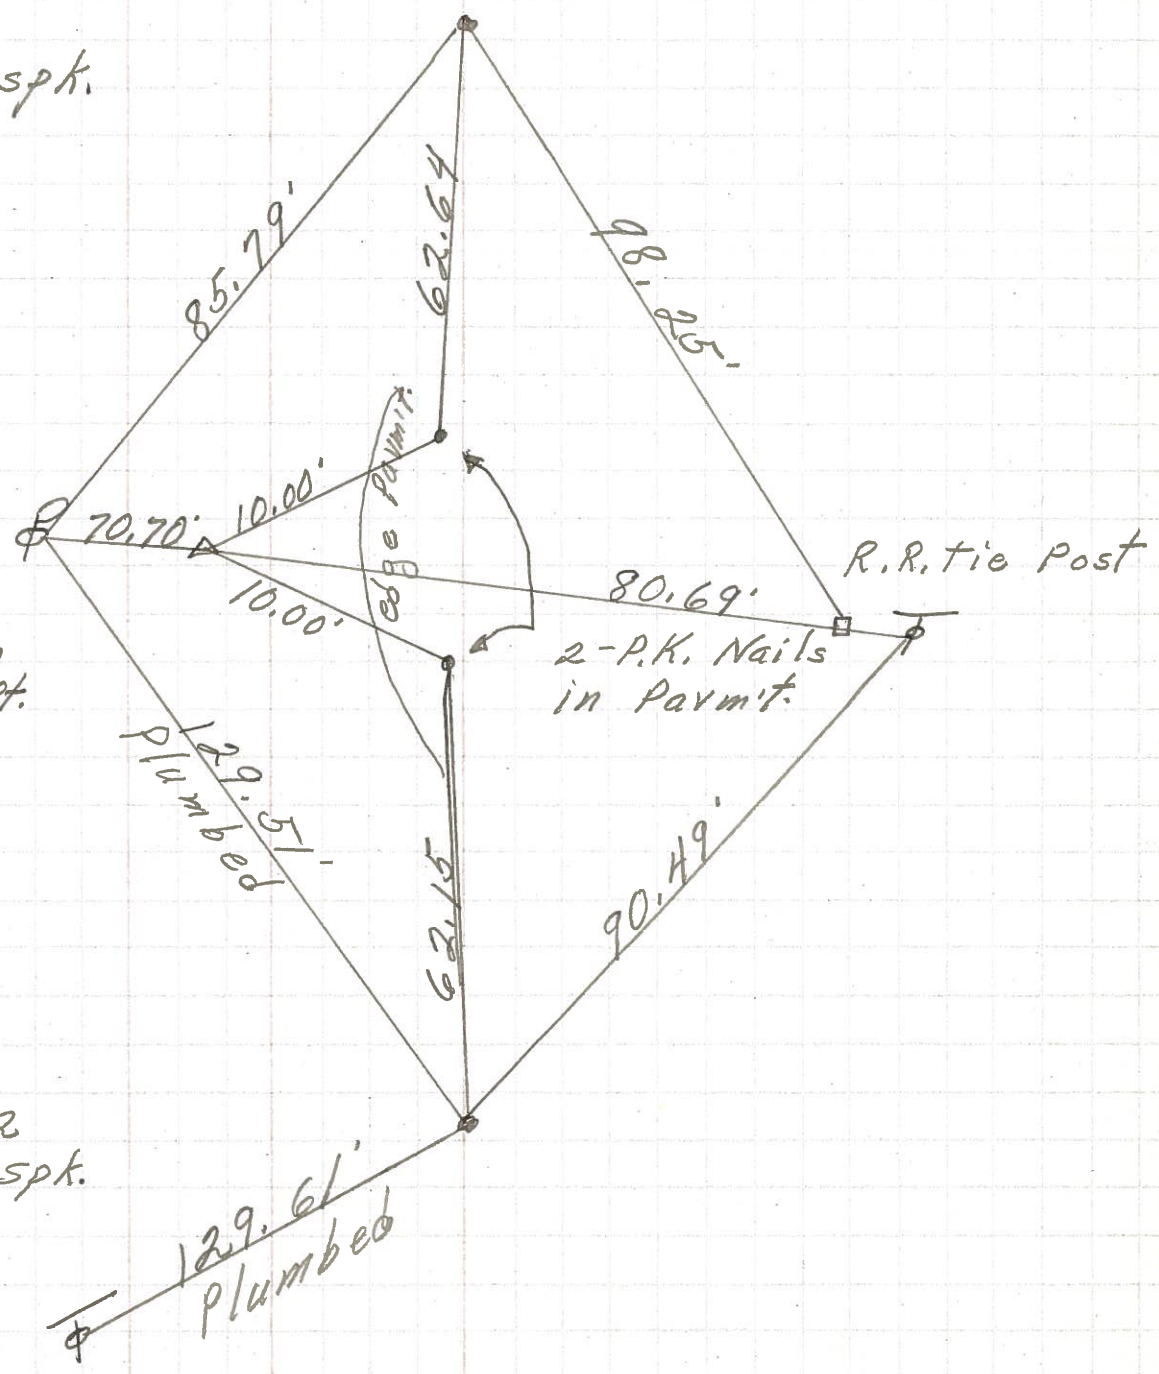 spk.
85.79'
62.64
98.25'
edge Pavm't.
10.00'
70.70'
10.00'
80.69'
R.R. tie Post
2-P.K. Nails
in Pavm't.
pt.
129.51'
plumbed
62.15
90.49'
2
spk.
129.61'
plumbed